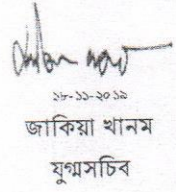 ১৮-১১-২০১৯
জাকিয়া খানম
যুগ্মসচিব